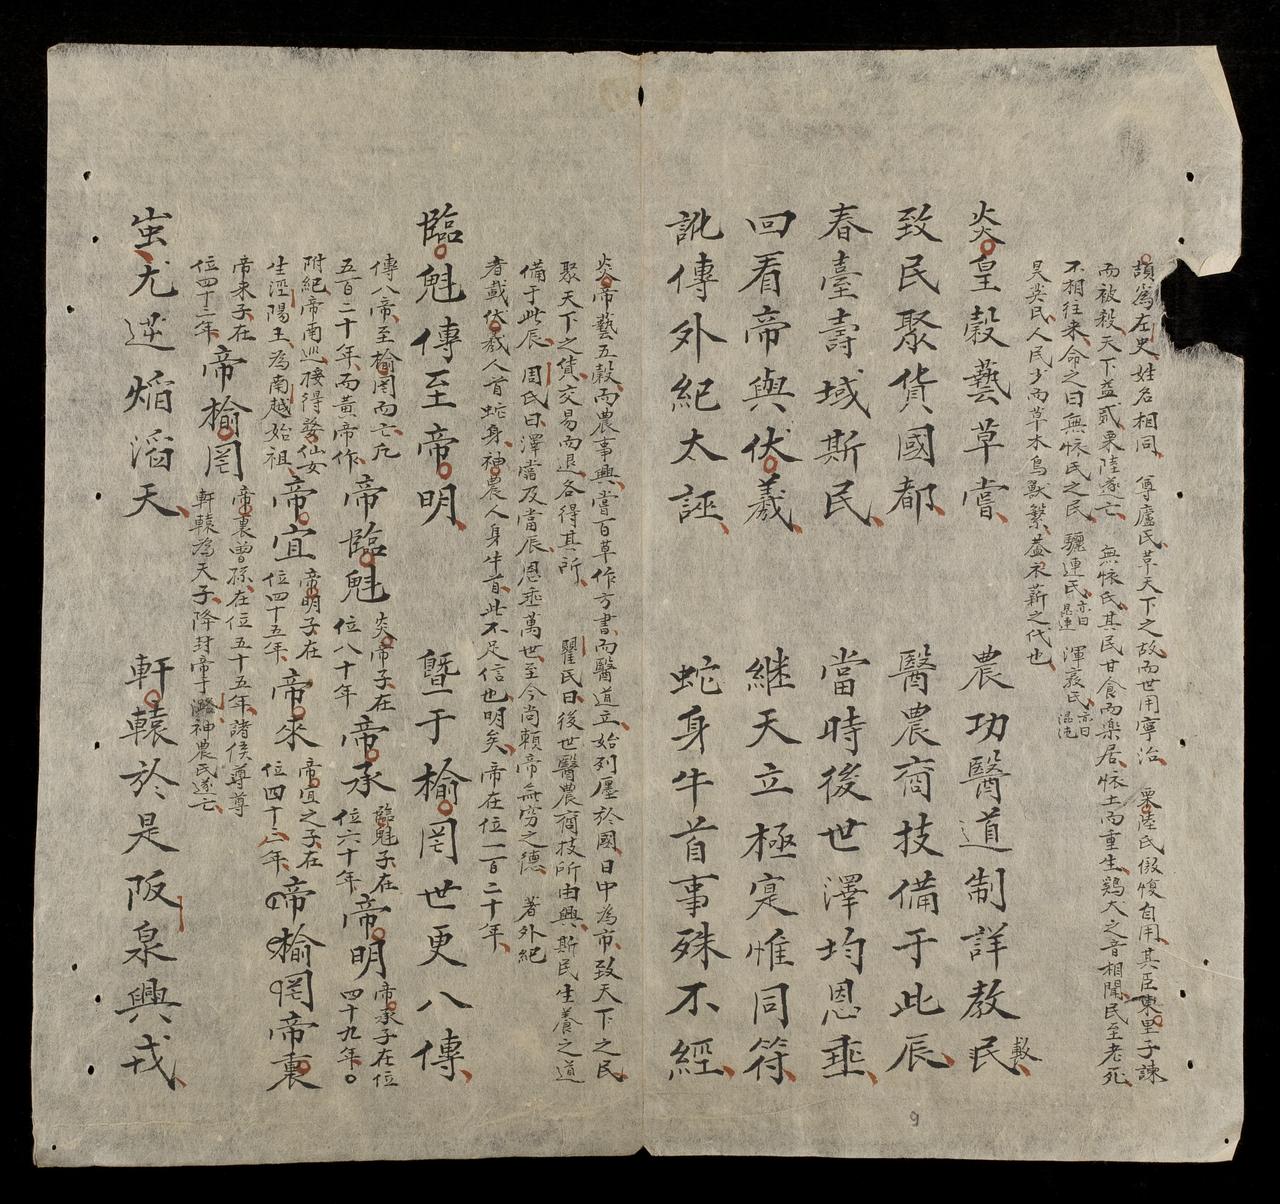 頡爲左史姓名相同 尊廬氏草天下之故而世用寧治 栗陸氏愎自用其臣東里子諫
而被殺天下益貳栗陸遂亡 無怀氏其民甘食而楽居怀土而重生鷄犬之音相聞民至老死
不相往来命之曰無怀氏之民 驪連氏亦曰昆連 渾敦氏亦曰混沌
昊英氏人民少而草木鳥獣繁葢禾薪之代也
炎皇穀藝草嘗 農功醫道制詳教民
教
致民聚貨國都 醫農商技備于此辰
春臺壽域斯民 當時後世澤均恩垂
回看帝與伏羲 継天立極寔惟同符
訛傳外紀太誣 蛇身牛首事殊不經
炎帝藝五穀而農事興嘗百草作方書而醫道立始列廛於國日中為市致天下之民
聚天下之貨交易而退各得其所 瞿氏曰後世醫農商技所由興斯民生養之道
備于此辰 周氏曰澤當及當辰恩垂萬世至今尚頼帝無穷之德 著外紀
者載伏羲人首蛇身神農人身牛首此不足信也明矣 帝在位一百二十年
臨魁傳至帝明 曁于榆罔世更八傳
傳八帝至榆罔而亡凢
五百二十年而黄帝作 帝臨魁 炎帝子在位八十年 帝承 臨魁子在位六十年 帝明 帝承子在位四十九年
附紀帝南巡接得婺仙女
生涇陽王為南越始祖 帝宜 帝明子在位四十五年 帝来 帝宜之子在位四十二年 帝榆罔帝裏
帝来子在
位四十三年 帝榆罔 帝裏曽孫在位五十五年諸侯尊
軒轅為天子降封帝于潞神農氏遂亡
蚩尤逆焰滔天 軒轅於是阪泉興戎
9